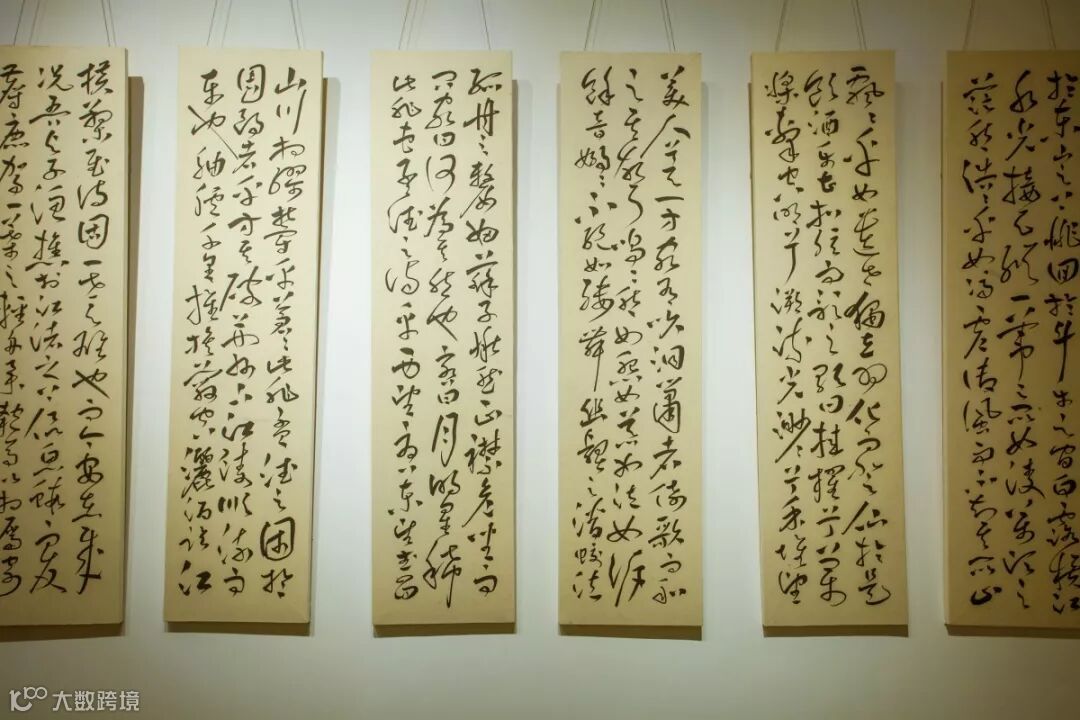 於東山之上徘徊於斗牛之間白露橫江
水光接天縱一葦之所如凌萬頃之
茫然浩浩乎如馮虛御風而不知其所止
飄〻乎如遺世獨立羽化而登仙於是
飲酒樂甚扣舷而歌之歌曰桂櫂兮蘭
槳擊空明兮溯流光渺〻兮予懷望
美人兮天一方客有吹洞簫者倚歌而和
之其聲嗚〻然如怨如慕如泣如訴
餘音嫋〻不絕如縷舞幽壑之潛蛟泣
孤舟之嫠婦蘇子愀然正襟危坐而
問客曰何為其然也客曰月明星稀
此非孟德之詩乎西望夏口東望武昌
山川相繆鬱乎蒼〻此非孟德之困於
周郎者乎方其破荊州下江陵順流而
東也舳艫千里旌旗蔽空釃酒臨江
橫槊賦詩固一世之雄也而今安在哉
況吾與子漁樵於江渚之上侶魚蝦而友
麋鹿駕一葉之扁舟舉匏尊以相屬寄
大数跨境